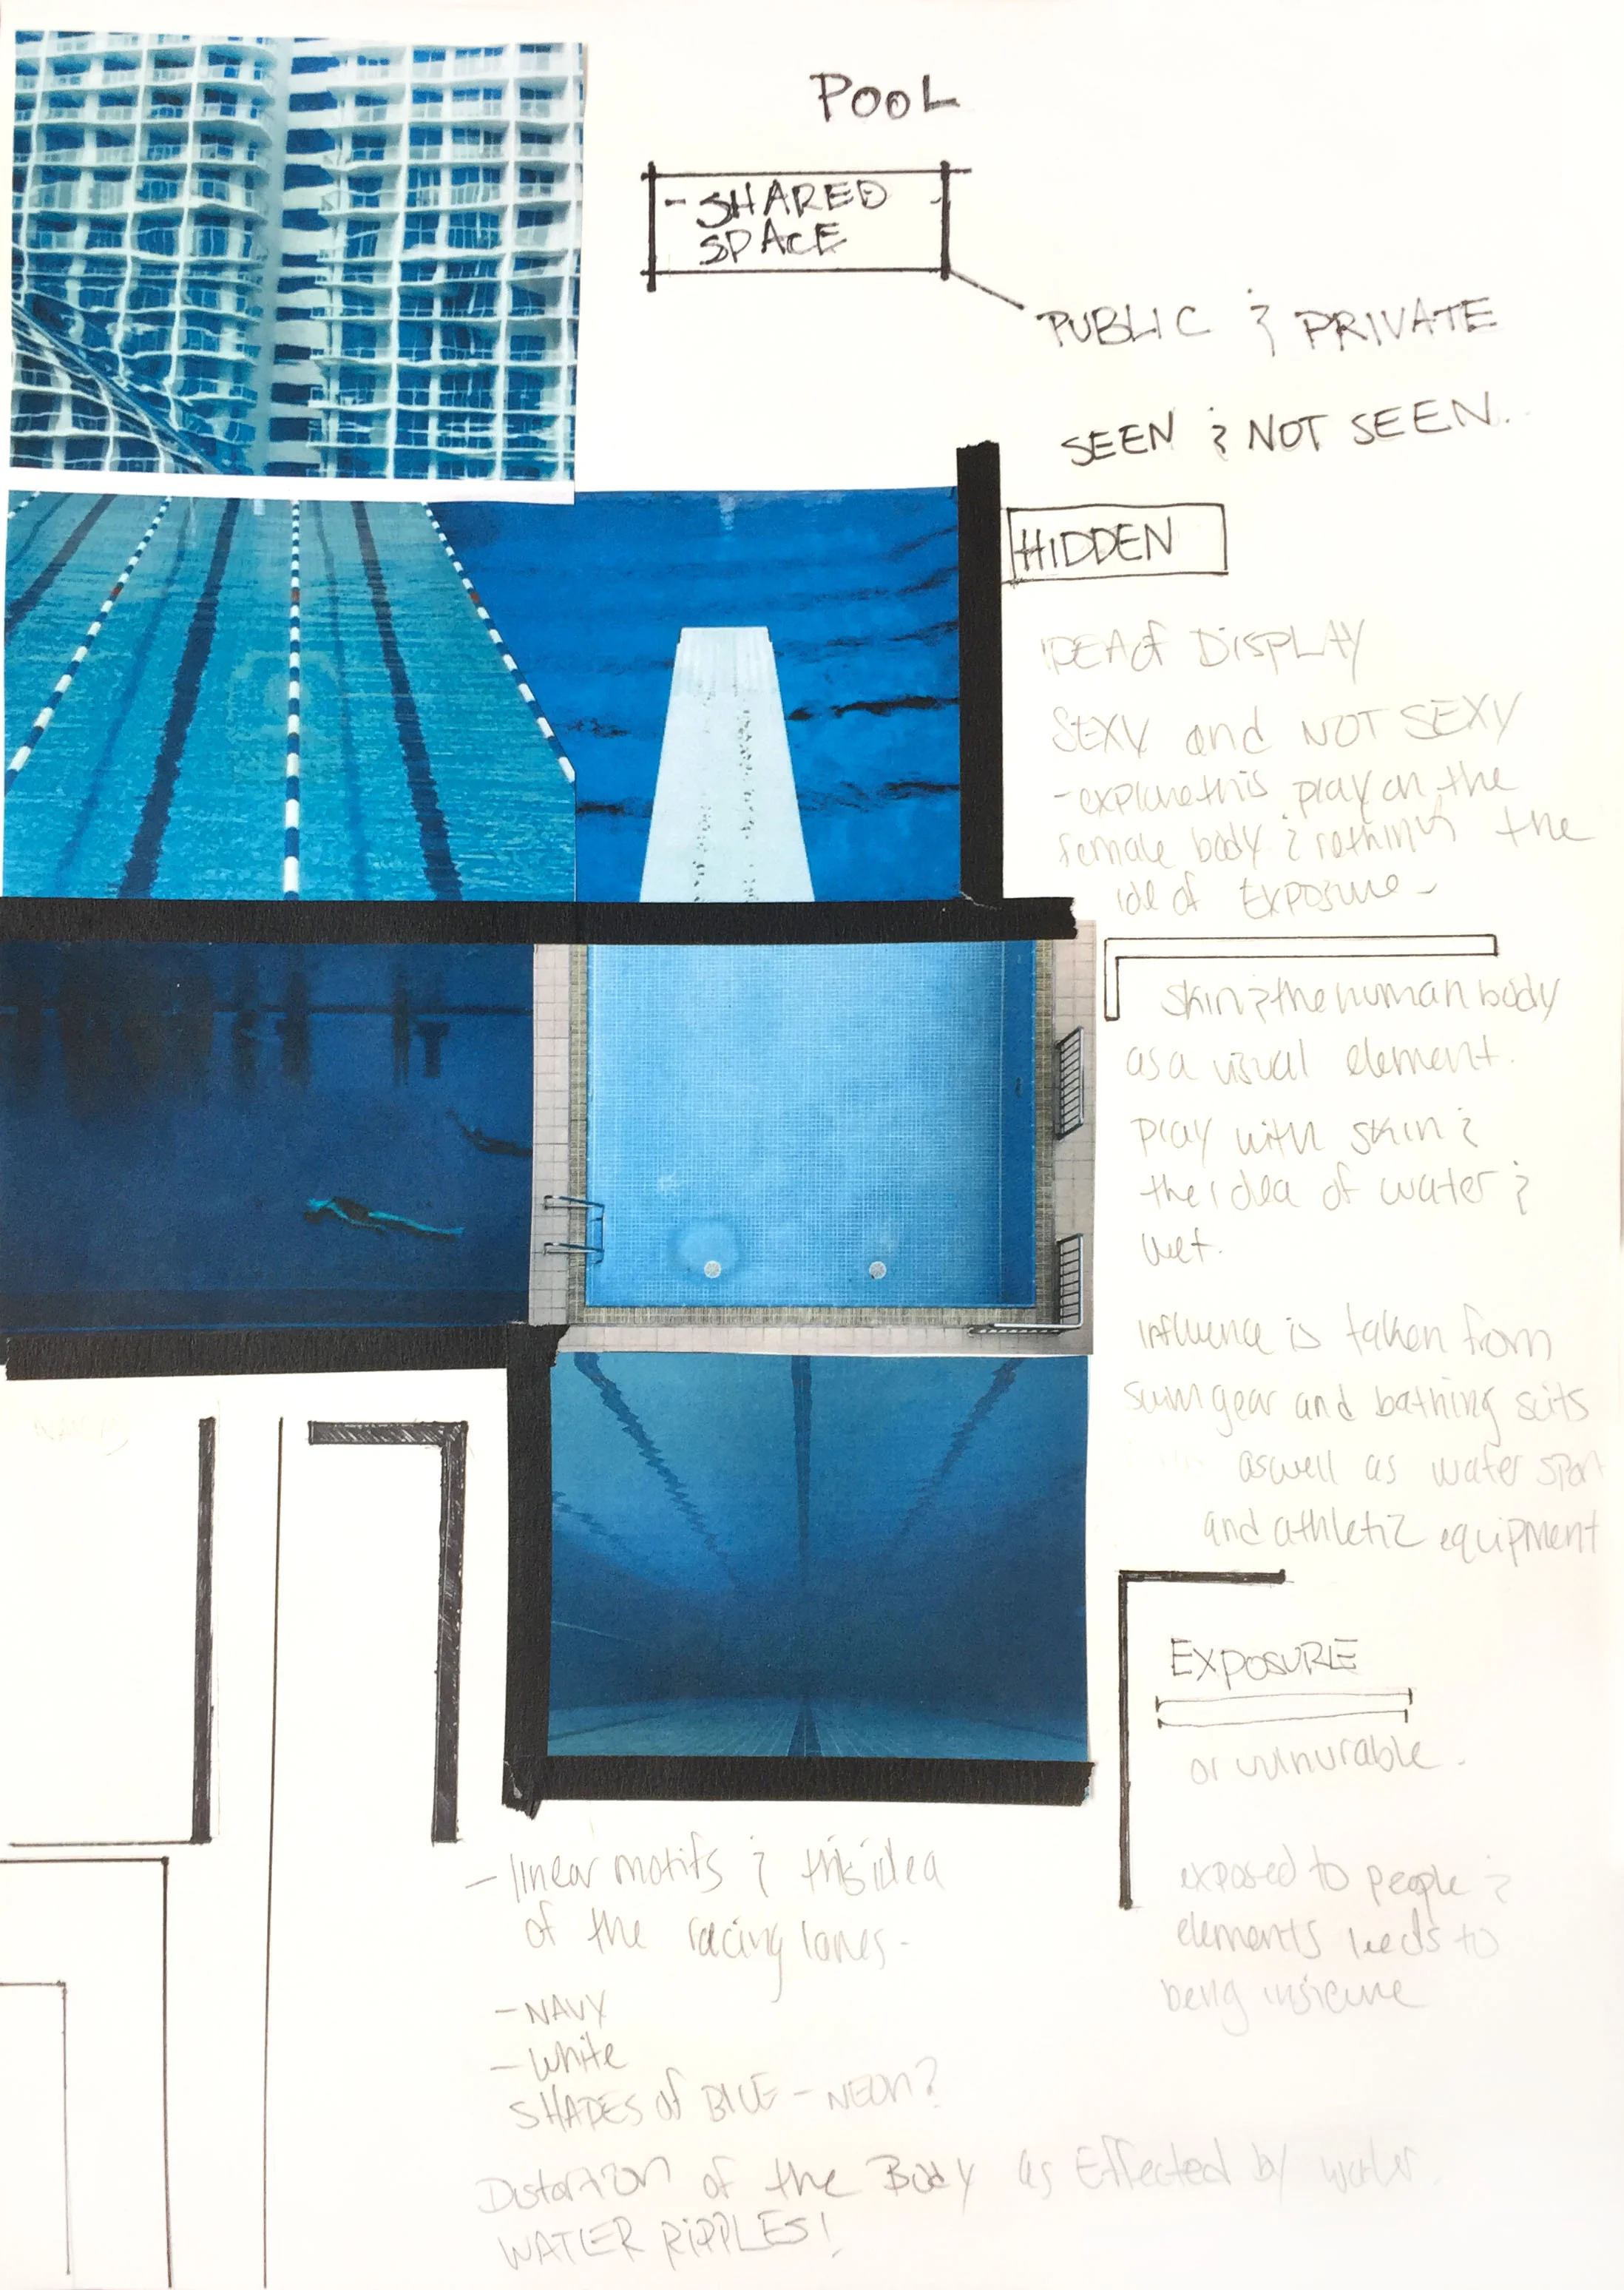 POOL
- SHARED -
SPACE
PUBLIC & PRIVATE
SEEN & NOT SEEN.
HIDDEN
IDEA of DISPLAY
SEXY and NOT SEXY
- explore this play on the
female body & rethink the
idea of Exposure -
skin & the human body
as a visual element.
play with skin &
the idea of water &
wet.
influence is taken from
swim gear and bathing suits
aswell as water sport
and athletic equipment
EXPOSURE
or vulnurable.
exposed to people &
elements leeds to
being insicure
- linear motifs & this idea
of the racing lanes -
- NAVY
- White
SHADES of BLUE - NEON?
Distortion of the Body as Effected by water.
WATER RIPPLES!